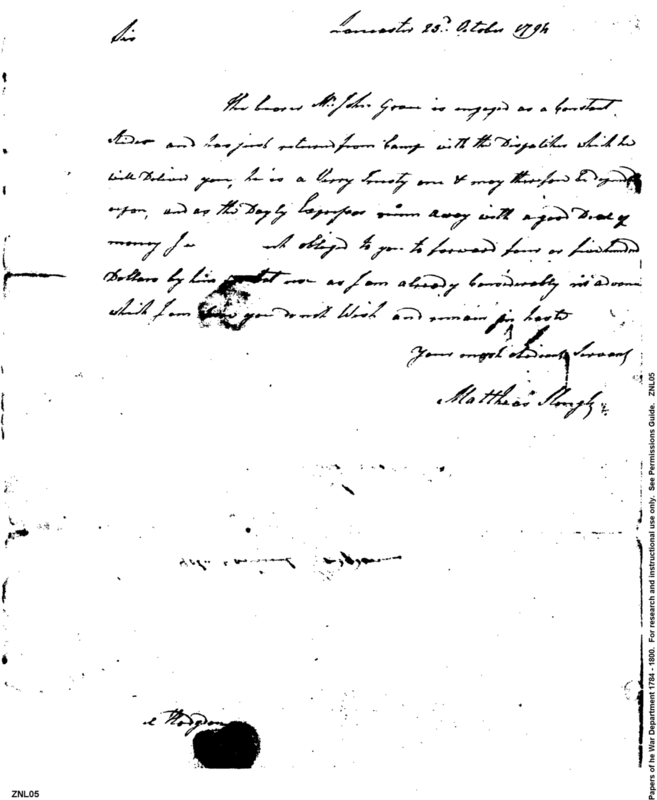 Sir
Lancaster 23d October 1794
The bearer Mr. John Grove is engaged as a Constant
Rider and has just returned from Camp with the Dispatches which he
will Deliver you, he is a Verry Trusty one & may therefore be
upon, and as the Dayly Expresses runn away with a good Deal of
money I obliged to you to forward four or five hundred
Dollars by him as I am already Considerably in advance
which I am sure you do not Wish and remain in haste
Your most obedient Servant
Matthias Slough
Hodgdon
ZNL05
Papers of he War Department 1784 - 1800. For research and instructional use only. See Permissions Guide. ZNL05